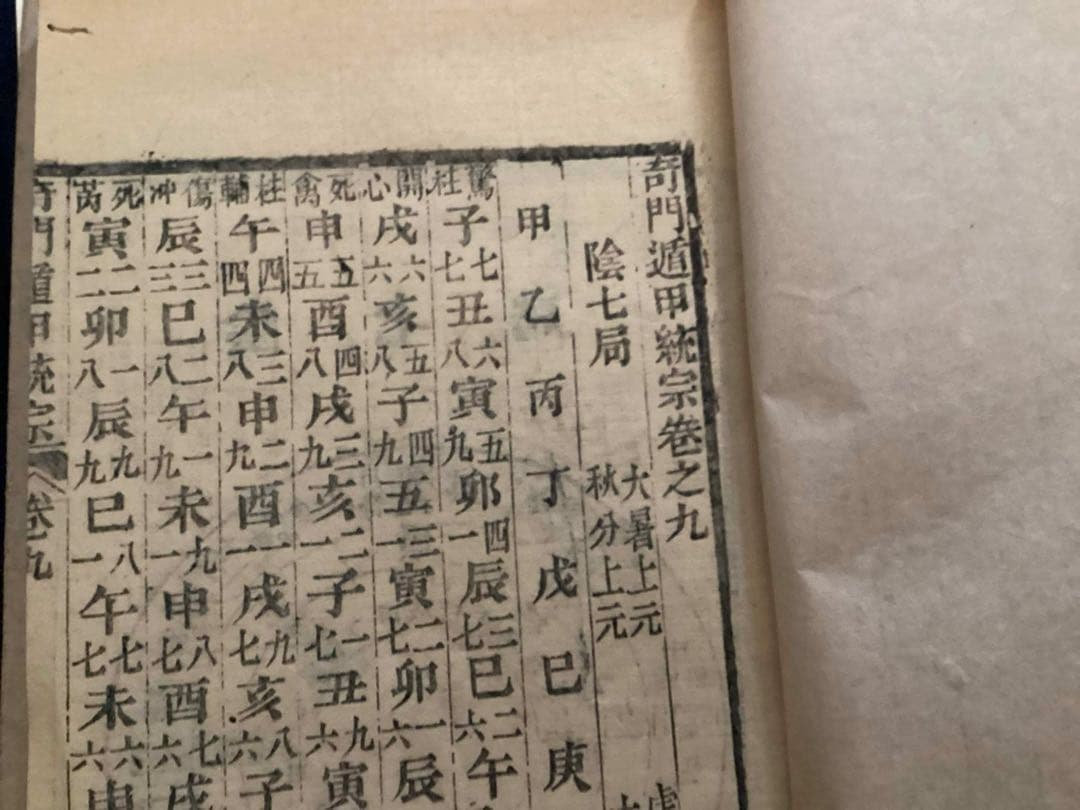 奇門遁甲統宗卷之九
陰七局
大暑上元
秋分上元
甲乙丙丁戊巳庚
驚柱子七七丑六八寅五九卯四一辰三七巳二六午
開心戌六六亥五八子四九五三一寅二七卯一六辰
死禽申五五酉四八戌三九亥二一子一七丑九六寅
柱輔午四四未三八申二九酉一一戌九七亥八六子
傷冲辰三三巳二八午一九未九一申八七酉七六戌
死芮寅二二卯一八辰九九巳八一午七七未六六申
奇門遁甲統宗 卷九